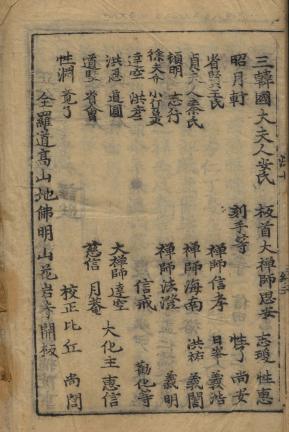 三韓國大夫人安氏　板首大禪師思安　志璦　性惠
昭月軒　刻手等　性了　尚安
禪師信孝　日峯　義浩
貞夫人秦氏　禪師海南　洪祐　義誾
頓明　志行　禪師法澄　義明
信戒　勸化等
達空　洪孝
洪恩　道圓　大禪師達空　大化主惠信
道堅　資會　慈信　月菴
性澗　覓了　校正比丘　尚誾
全羅道高山地佛明山花岩寺開板